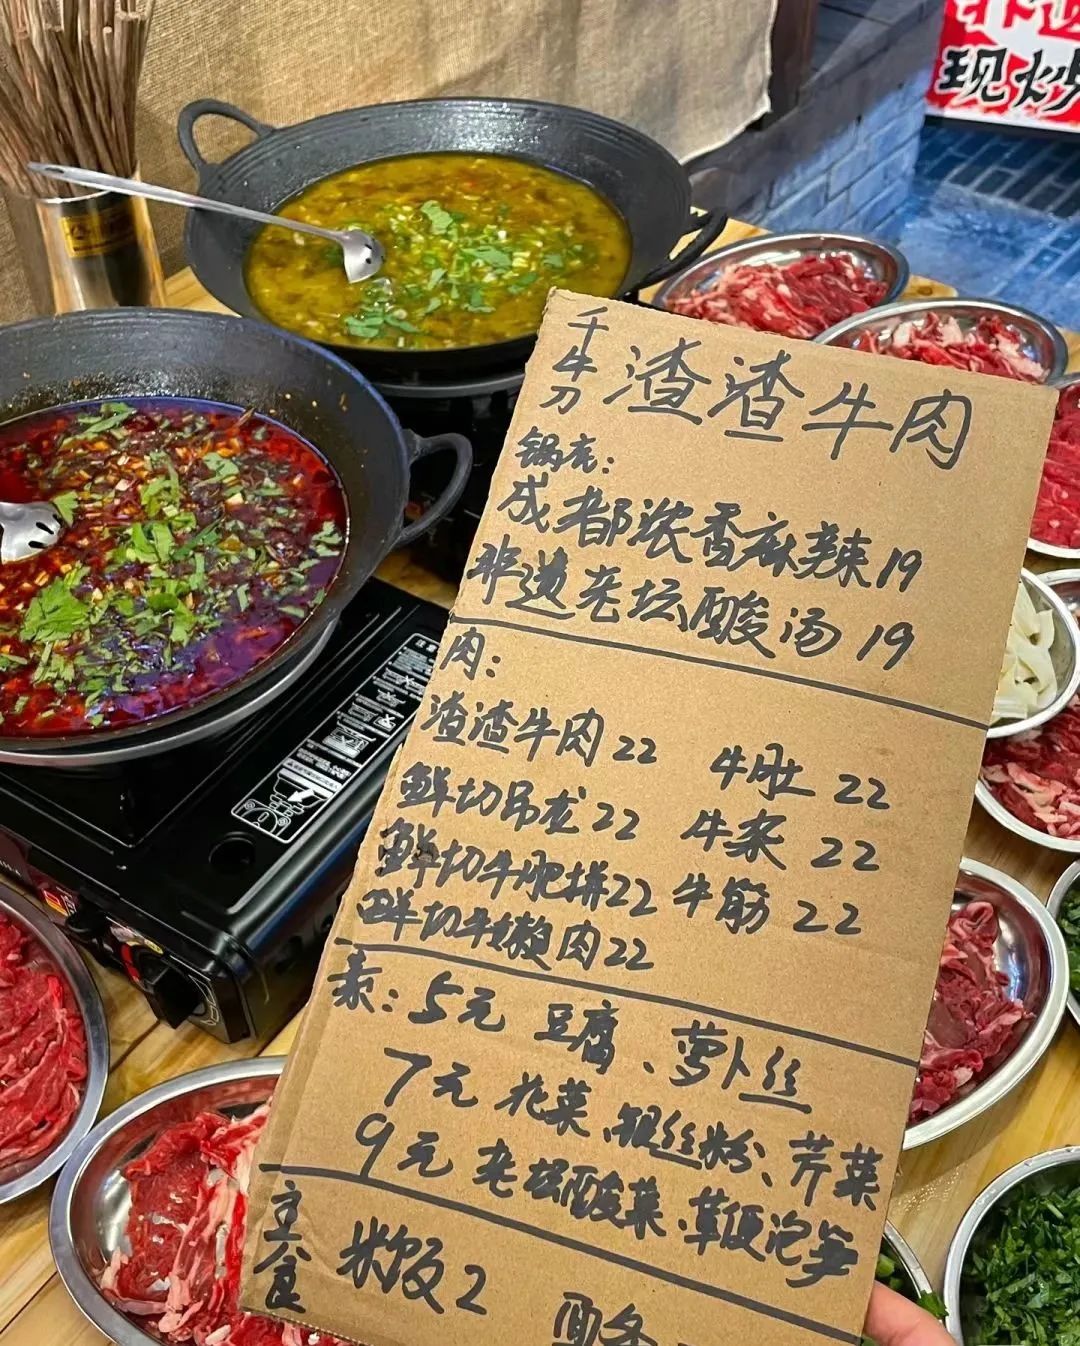 现炒
千牛刀 渣渣牛肉
锅底:
成都浓香麻辣19
非遗老坛酸汤 19
肉:
渣渣牛肉22 牛肚 22
鲜切吊龙22 牛杂 22
鲜切牛肥拼22 牛筋 22
鲜切牛嫩肉22
素: 5元 豆腐、萝卜丝
7元 花菜、银丝粉、芹菜
9元 老坛酸菜、草原泡笋
主食 米饭2 面条